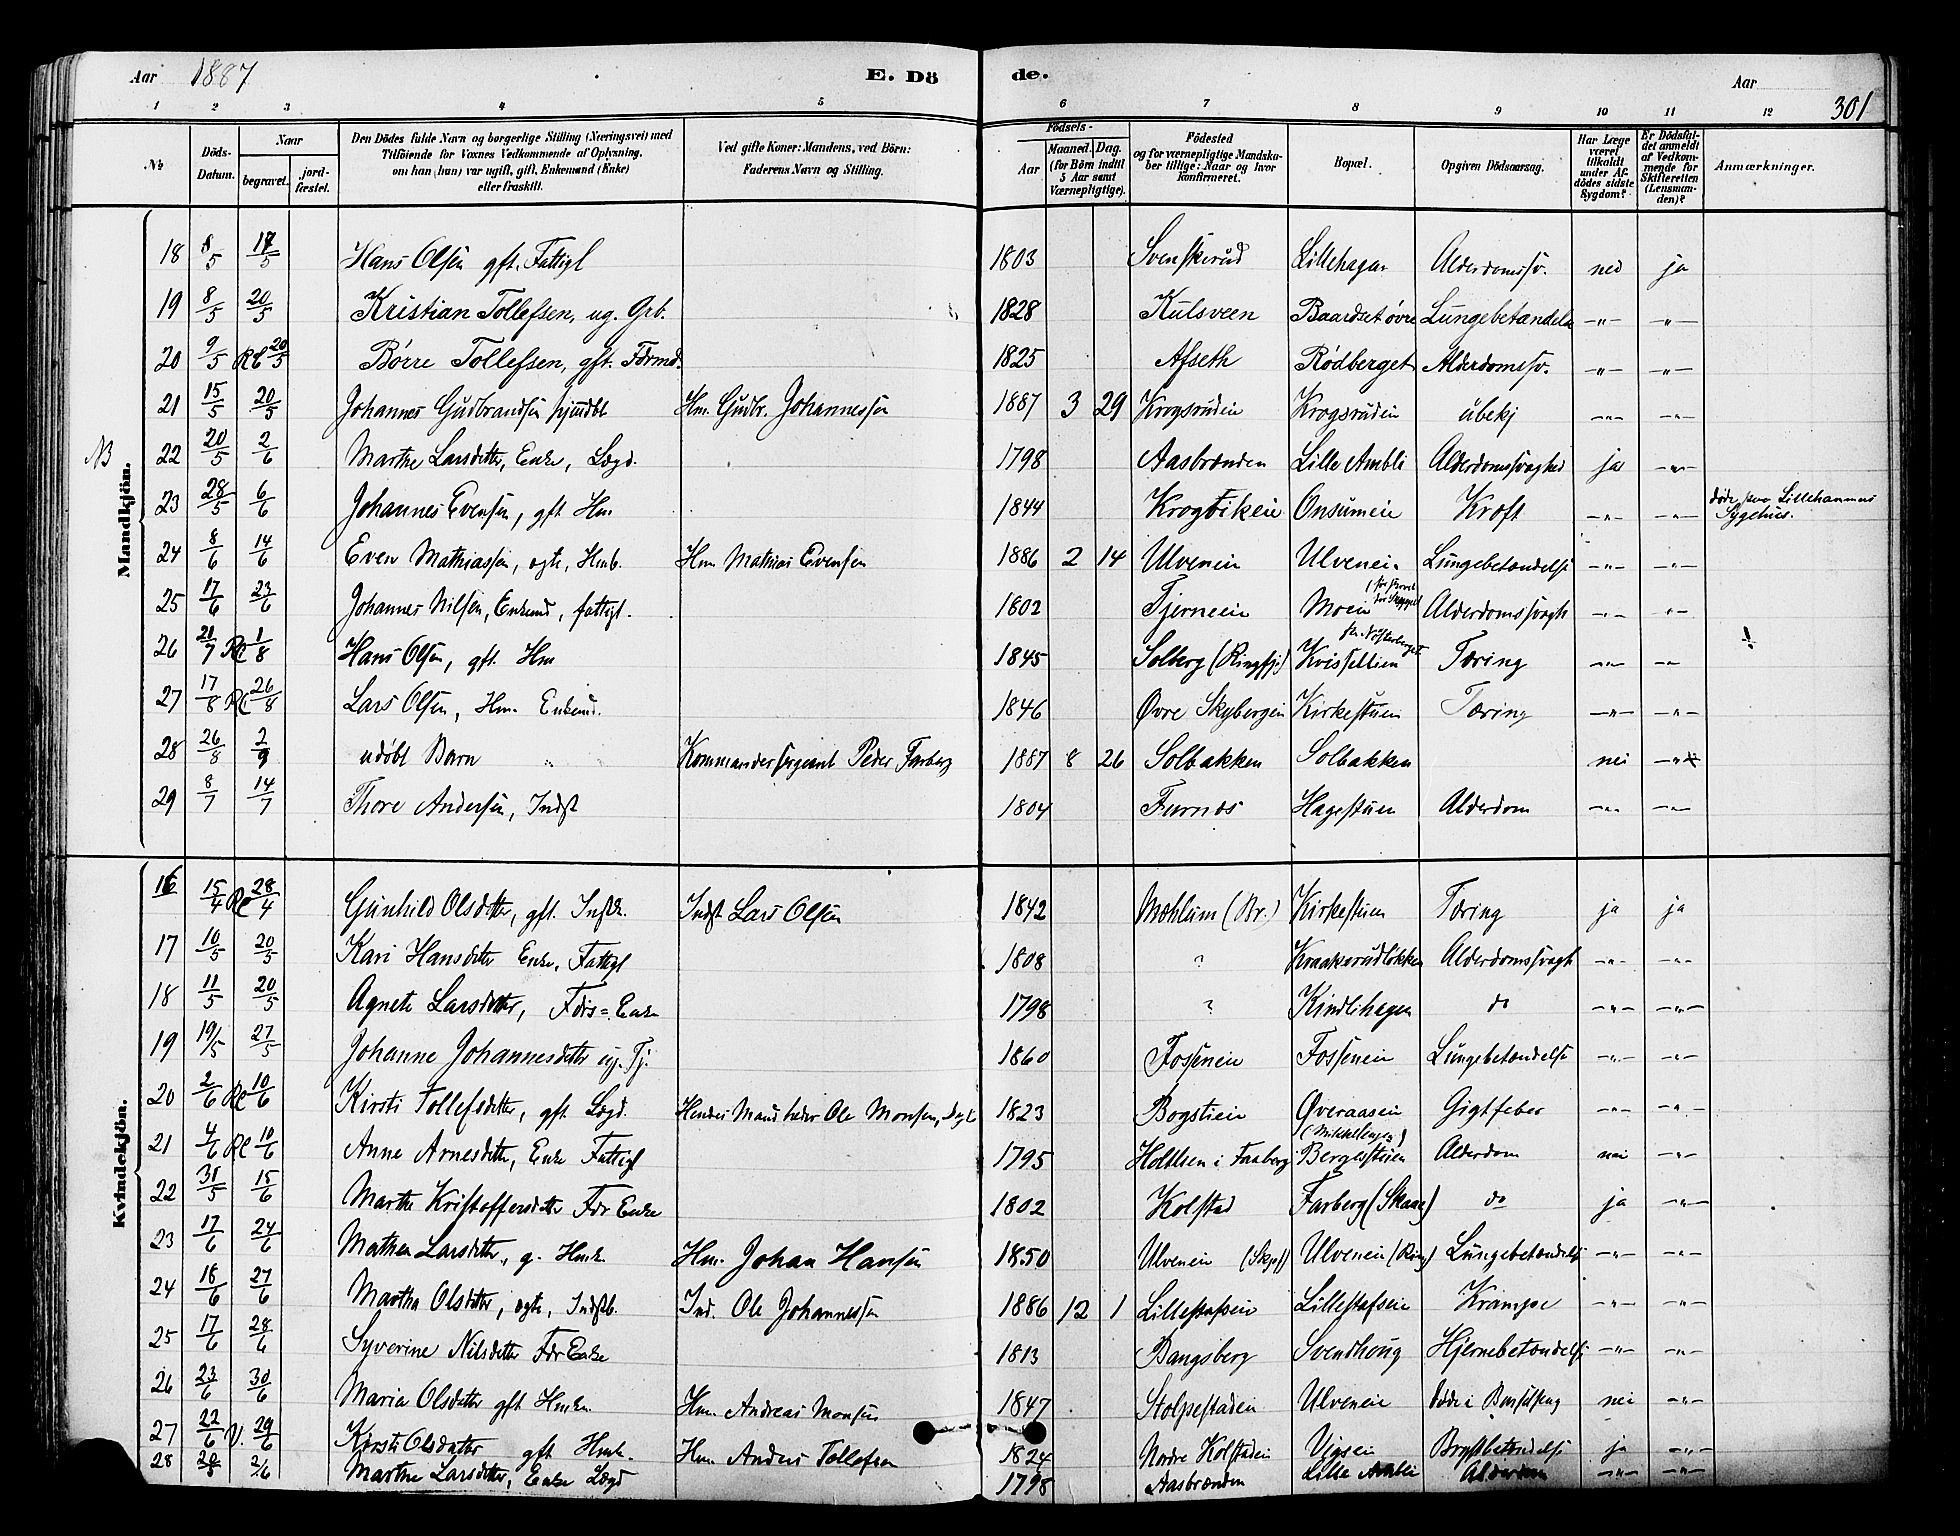 Aar 1887 E. Dö de. Aar 301
1 2 3 4 5 6 7 8 9 10 11 12
No Döds-Datum. Naar begravet. jord-fæstet. Den Dödes fulde Navn og borgerlige Stilling (Næringsvei) med Tilföiende for Voxnes Vedkommende af Oplysning, om han (hun) var ugift, gift, Enkemand (Enke) eller fraskilt. Ved gifte Koner: Mandens, ved Börn: Faderens Navn og Stilling. Födsels- Aar Maaned. Dag. (for Börn indtil 5 Aar samt Værnepligtige). Födested og for værnepligtige Mandskaber tillige: Naar og hvor konfirmeret. Bopæl. Opgiven Dödsaarsag. Har Læge været tilkaldt under Afdödes sidste Sygdom? Er Dödsfaldet anmeldt af Vedkommende for Skifteretten (Lensmanden)? Anmærkninger.
Mandkjön.
18 8/5 17/5 Hans Olsen gft. Fattigl 1803 Svenskerud Lillehagen Alderdomssv. nei ja
19 8/5 20/5 Kristian Tollefsen, ug. Grb. 1828 Kulsveen Baardset øvre Lungebetændelse -"- -"-
20 9/5 20/5 Børre Tollefsen, gft. Formd. 1825 Afseth Rødberget Alderdomssv. -"- -"-
21 15/5 20/5 Johannes Gudbrandsen hjmdbt Hm. Gudbr. Johannessen 1887 3 29 Krogsrudein Krogsrudein ubekj -"- -"-
NB 22 20/5 2/6 Marthe Larsdatter, Enke, Lægd. 1798 Aasbrænden Lille Ambli Alderdomssvaghed ja -"-
23 28/5 6/6 Johannes Evensen, gft Hm 1844 Krogbikein Onsumein Kræft -"- -"- døde paa Lillehammers Sygehus.
24 8/6 14/6 Even Mathiassen, ægte, Hmb. Hm Mathias Evensen 1886 2 14 Ulvenein Ulvenein Lungebetændelse -"- -"-
25 17/6 23/6 Johannes Nilsen, Enkemd, fattigl. 1802 Tjernein Moein Alderdomssvagh -"- -"-
26 21/7 1/8 Hans Olsen, gft. Hm 1845 Solberg (Ringsj) Kvisellien Tæring -"- -"- !
27 17/8 26/8 Lars Olsen, Hm. Enkemd. 1846 Øvre Skybergein Kirkestuen Tæring -"- -"-
28 26/8 2/9 udøbt Barn Kommandersergeant Peder Farberg 1887 8 26 Solbakken Solbakken nei -"-
29 8/7 14/7 Thore Andersen, Indst 1804 Furnæs Hagestuen Alderdom -"- -"-
Kvindekjön.
16 15/4 28/4 Gunhild Olsdatter, gft. Instk. Indst Lars Olsen 1842 Mæhlum (Br.) Kirkestuen Tæring ja ja
17 10/5 20/5 Kari Hansdatter Enke, Fattigl 1808 ? Kraakerudløkken Alderdomssvagh -"- -"-
18 11/5 20/5 Agnete Larsdatter, Fdrs=Enke 1798 ? Kindlihagen do -"- -"-
19 19/5 27/5 Johanne Johannesdatter ug. Tj. 1860 Fossenein Fossenein Lungebetændelse -"- -"-
20 2/6 10/6 Kirsti Tollefsdatter, gft. Lægd. Hendes Mand heder Ole Monsen, Lægd 1823 Bogstien Øveraasein Gigtfeber -"- -"-
21 4/6 10/6 Anne Arnesdatter, Enke Fattigl 1795 Holtlsen i Faaberg Bergesstuen Alderdom nei -"-
22 31/5 15/6 Marthe Kristoffersdatter Fdr Enke 1802 Kolstad Farberg (Skaar) do ja -"-
23 17/6 24/6 Mathea Larsdatter, g. Hmk. Hm. Johan Hansen 1850 Ulvenein Ulvenein (Ring) Lungebetændelse -"- -"-
24 18/6 27/6 Martha Olsdatter, ægte, Indstb. Ind. Ole Johannessen 1886 12 1 Lillestafsein Lillestafsein Krampe -"- -"-
25 17/6 28/6 Syverine Nilsdatter Fdr Enke 1813 Bangsberg Svendhoug Hjernebetændelse -"- -"-
26 23/6 30/6 Maria Olsdatter gft Hmkn. Hm. Andreas Monsen 1847 Stolpestaden Ulvenein døde i Barselseng nei -"-
27 22/6 29/6 Kirsti Olsdatter gft Hmk. Hm. Anders Tollefsen 1824 Nordre Kolstadein Brystbetændelse ja -"-
28 20/5 2/6 Marthe Larsdatter, Enke Lægd 1798 Aasbrænden Lille Ambli Alderdom -"- -"-